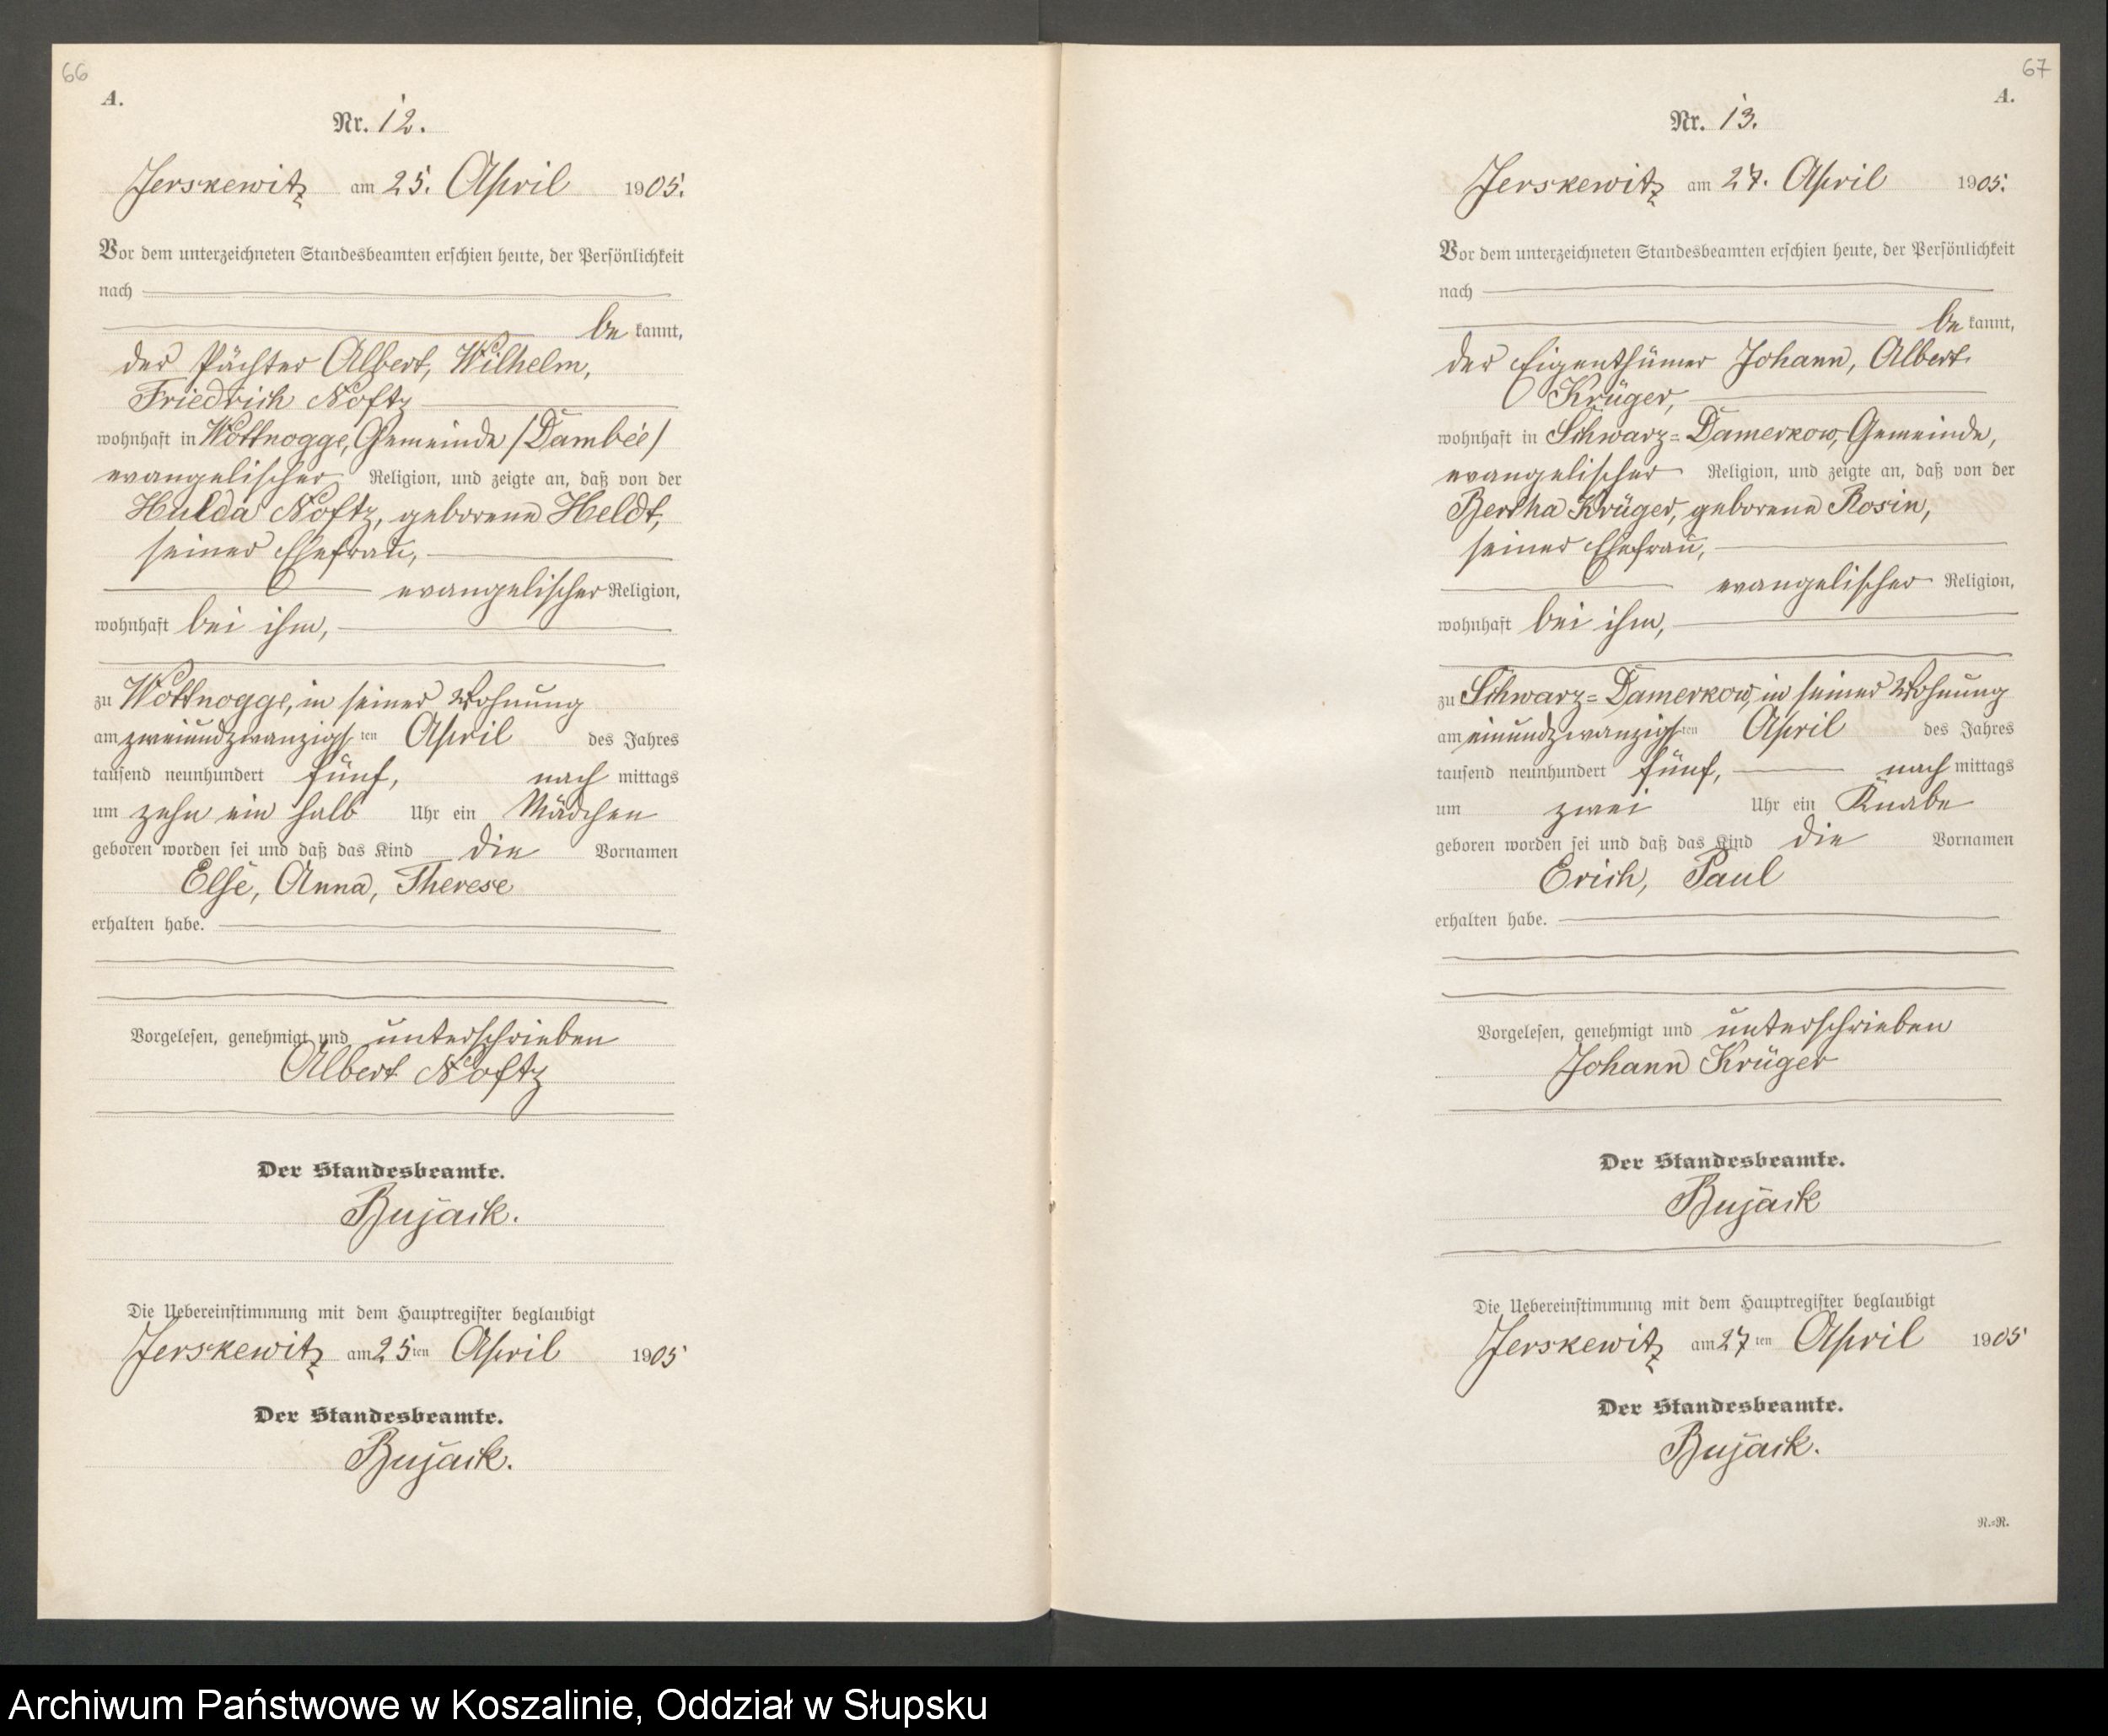 66
A.
Nr. 12.
Jerskewitz am 25. April 1905.
Vor dem unterzeichneten Standesbeamten erschien heute, der Persönlichkeit
nach
be kannt,
der Pächter Albert, Wilhelm,
Friedrich Noftz
wohnhaft in Wottnogge, Gemeinde /Dambée/
evangelischer Religion, und zeigte an, daß von der
Hulda Noftz, geborene Heldt,
seiner Ehefrau,
evangelischer Religion,
wohnhaft bei ihm,
zu Wottnogge, in seiner Wohnung
am zweiundzwanzigsten April des Jahres
tausend neunhundert fünf, nach mittags
um zehn ein halb Uhr ein Mädchen
geboren worden sei und daß das Kind die Vornamen
Else, Anna, Therese
erhalten habe.
Vorgelesen, genehmigt und unterschrieben
Albert Noftz
Der Standesbeamte.
Bujack.
Die Uebereinstimmung mit dem Hauptregister beglaubigt
Jerskewitz am 25ten April 1905
Der Standesbeamte.
Bujack.
67
A.
Nr. 13.
Jerskewitz am 27. April 1905.
Vor dem unterzeichneten Standesbeamten erschien heute, der Persönlichkeit
nach
be kannt,
der Eigenthümer Johann, Albert
Krüger,
wohnhaft in Schwarz-Damerkow, Gemeinde,
evangelischer Religion, und zeigte an, daß von der
Bertha Krüger, geborene Rosin,
seiner Ehefrau,
evangelischer Religion,
wohnhaft bei ihm,
zu Schwarz-Damerkow, in seiner Wohnung
am einundzwanzigsten April des Jahres
tausend neunhundert fünf, nach mittags
um zwei Uhr ein Knabe
geboren worden sei und daß das Kind die Vornamen
Erich, Paul
erhalten habe.
Vorgelesen, genehmigt und unterschrieben
Johann Krüger
Der Standesbeamte.
Bujack
Die Uebereinstimmung mit dem Hauptregister beglaubigt
Jerskewitz am 27ten April 1905
Der Standesbeamte.
Bujack.
N.=R.
Archiwum Państwowe w Koszalinie, Oddział w Słupsku